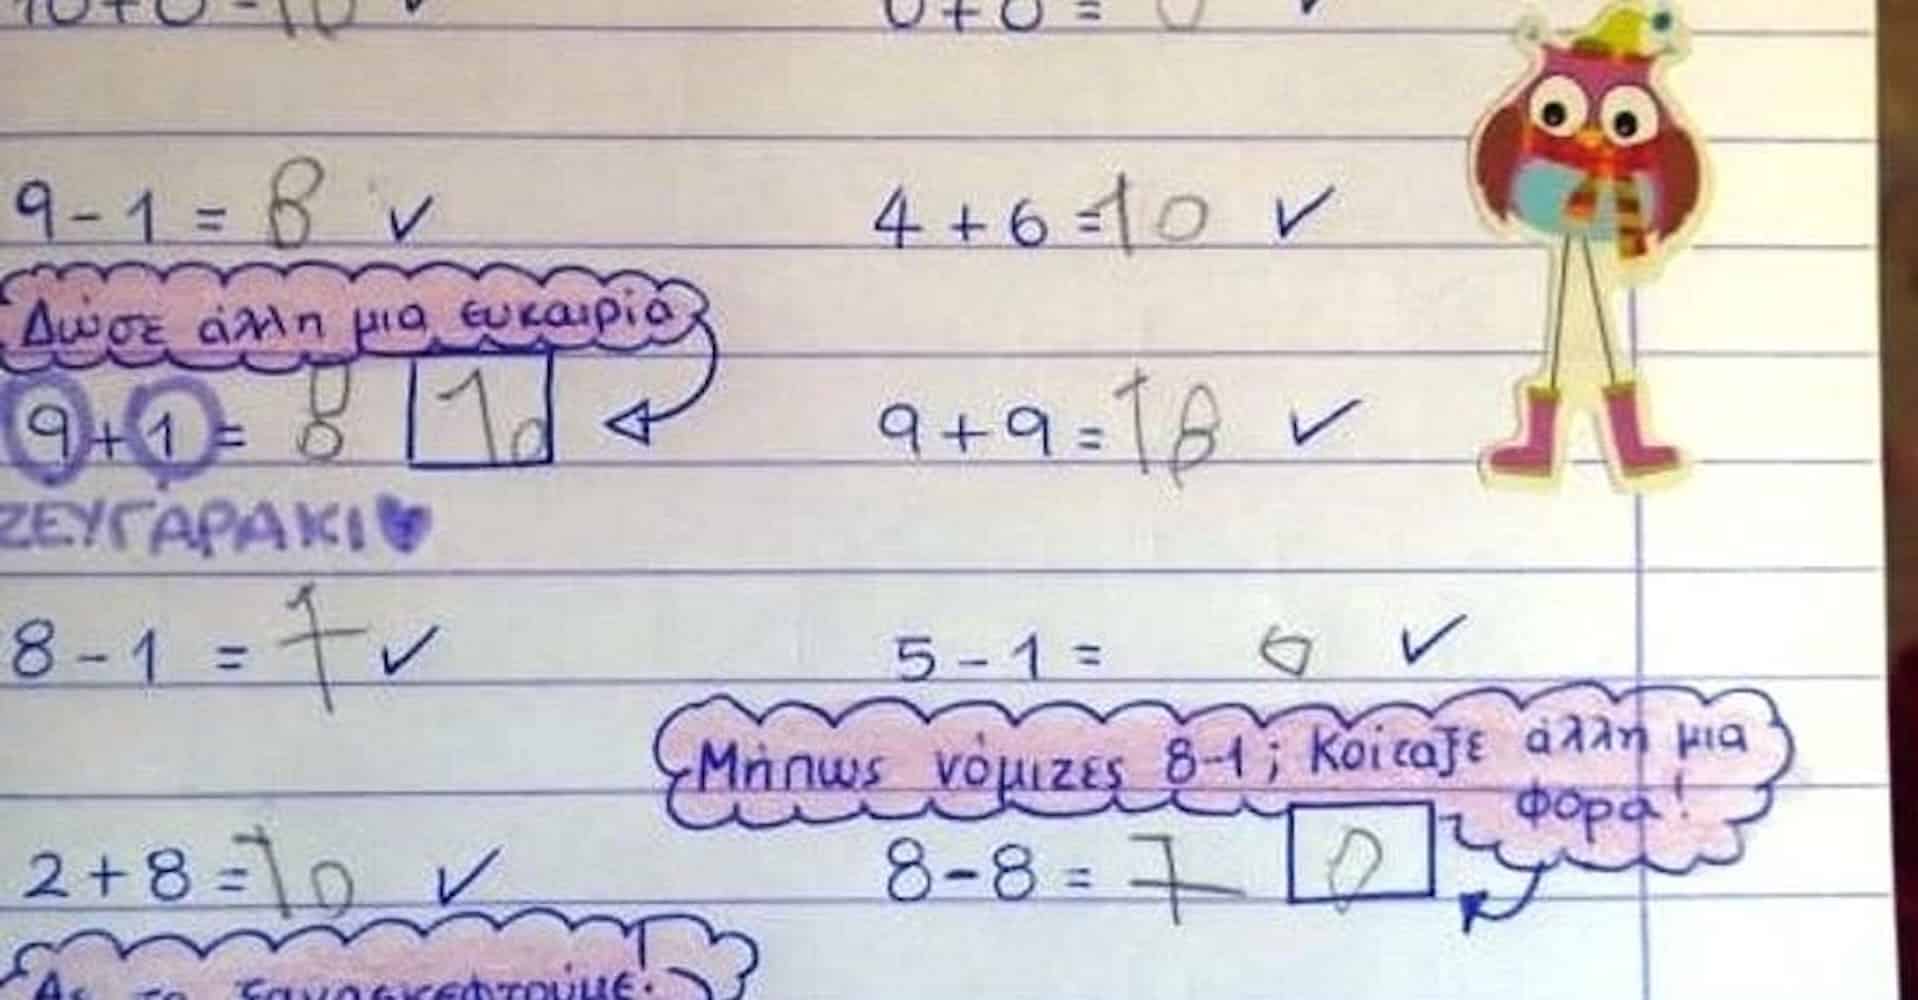 10+0=10 ✓ 0+0=0 ✓
9-1=8 ✓ 4+6=10 ✓
Δώσε άλλη μια ευκαιρία
9+1=8 10 9+9=18 ✓
ΖΕΥΓΑΡΑΚΙ
8-1=7 ✓ 5-1= ✓
Μήπως νόμιζες 8-1; Κοίταξε άλλη μια
φορά!
2+8=10 ✓ 8-8=7 0
Ας το ξανασκεφτούμε.